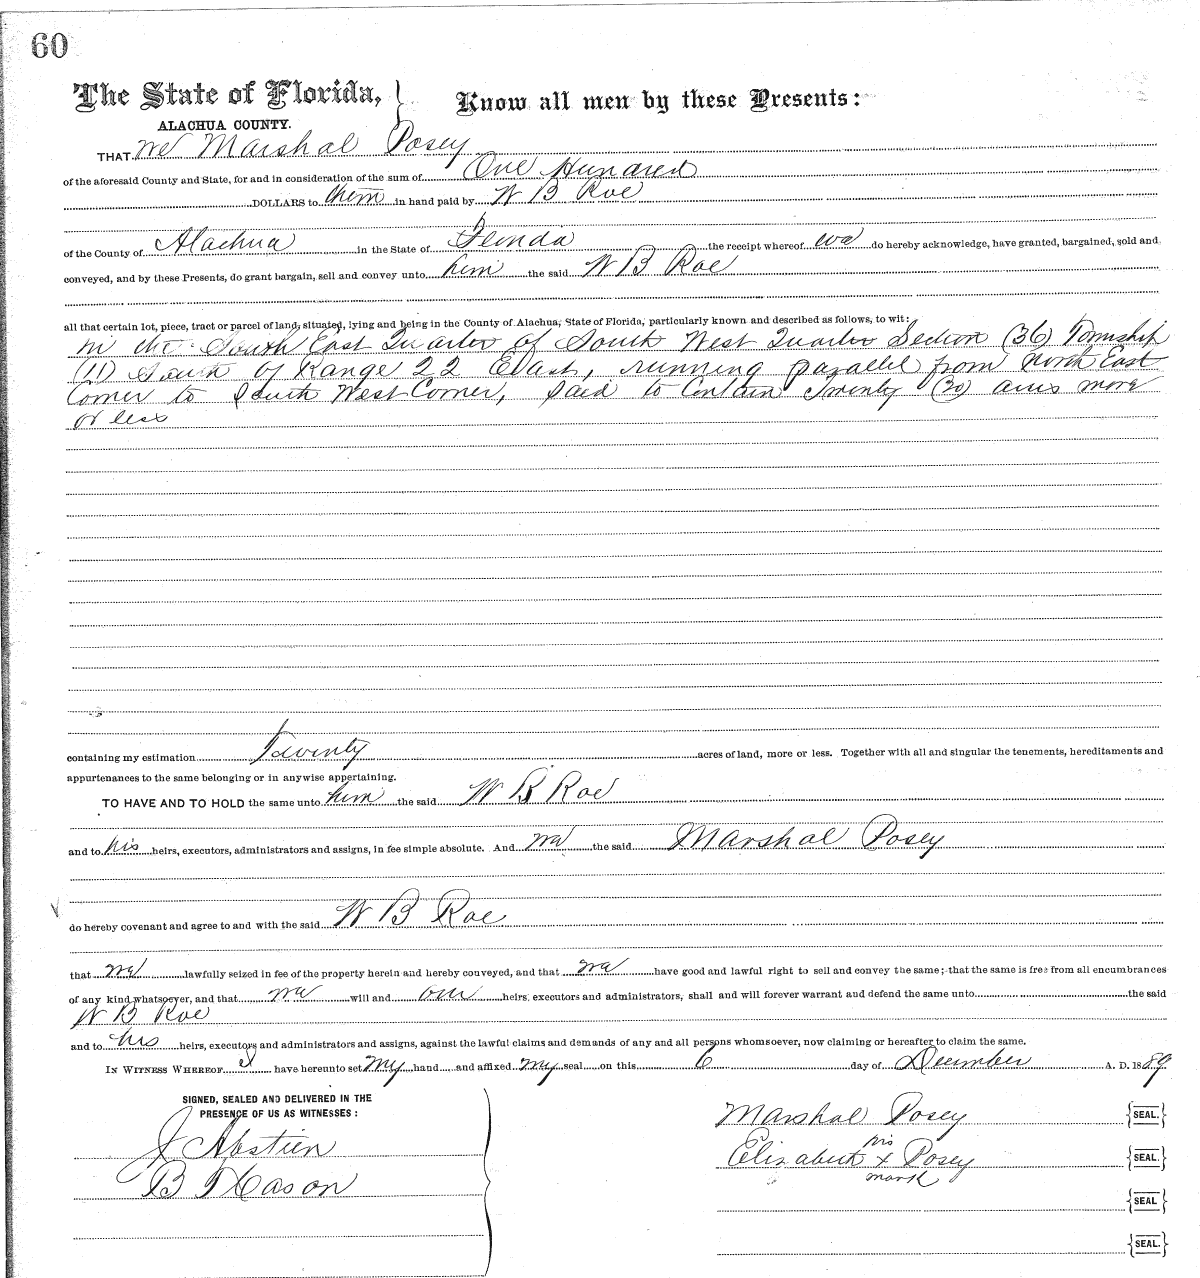 60
The State of Florida, } Know all men by these Presents:
ALACHUA COUNTY.
THAT we Marshal Posey
of the aforesaid County and State, for and in consideration of the sum of One Hundred
DOLLARS to them in hand paid by W B Roe
of the County of Alachua in the State of Florida the receipt whereof we do hereby acknowledge, have granted, bargained, sold and
conveyed, and by these Presents, do grant bargain, sell and convey unto him the said W B Roe
all that certain lot, piece, tract or parcel of land, situated, lying and being in the County of Alachua, State of Florida, particularly known and described as follows, to wit:
In the South East Quarter of South West Quarter Section (36) Township
(11) South of Range 22 East, running parallel from North East
Corner to South West Corner, Said to Contain Twenty (20) acres more
or less
containing my estimation Twenty acres of land, more or less. Together with all and singular the tenements, hereditaments and
appurtenances to the same belonging or in anywise appertaining.
TO HAVE AND TO HOLD the same unto him the said W B Roe
and to his heirs, executors, administrators and assigns, in fee simple absolute. And we the said Marshal Posey
do hereby covenant and agree to and with the said W B Roe
that we lawfully seized in fee of the property herein and hereby conveyed, and that we have good and lawful right to sell and convey the same; that the same is free from all encumbrances
of any kind whatsoever, and that we will and our heirs, executors and administrators, shall and will forever warrant and defend the same unto the said
W B Roe
and to his heirs, executors and administrators and assigns, against the lawful claims and demands of any and all persons whomsoever, now claiming or hereafter to claim the same.
IN WITNESS WHEREOF I have hereunto set my hand and affixed my seal on this 6 day of December A. D. 1889
SIGNED, SEALED AND DELIVERED IN THE
PRESENCE OF US AS WITNESSES:
Marshal Posey {SEAL.}
his
J Abstien Elizabeth x Posey {SEAL.}
mark
B Cason {SEAL}
{SEAL.}